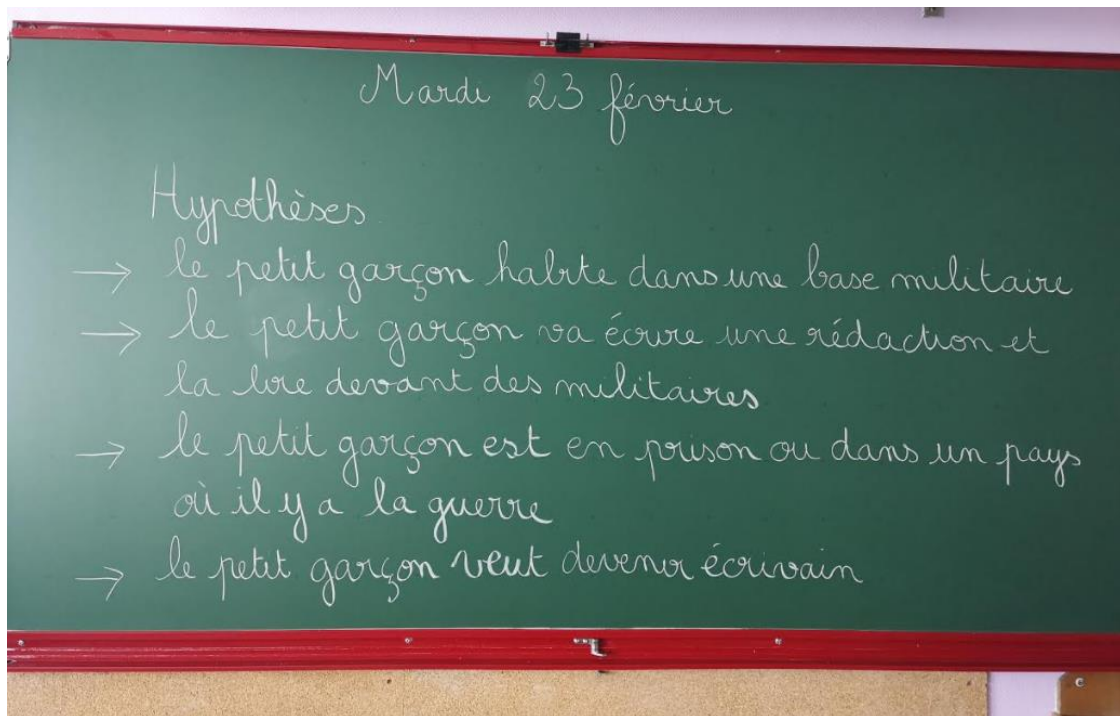 Mardi 23 février
Hypothèses
→ le petit garçon habite dans une base militaire
→ le petit garçon va écrire une rédaction et
la lire devant des militaires
→ le petit garçon est en prison ou dans un pays
où il y a la guerre
→ le petit garçon veut devenir écrivain